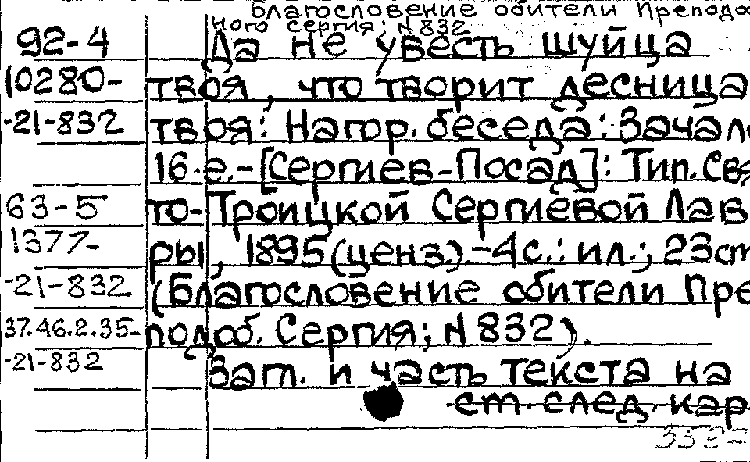 Благословение обители Преподо
ного Сергия; N 832
92-4 Да не увесть шуйца
10280- твоя, что творит десница
-21-832 твоя: Нагор. беседа: Зачало
16-е.-[Сергиев-Посад]: Тип. Свя
63-5 то-Троицкой Сергиевой Лав
1377- ры, 1895 (ценз.).-4с.: ил.; 23см
-21-832 (Благословение обители Пре
37.46.2.35- подоб. Сергия; N 832).
-21-832 Заг. и часть текста на
см. след. кар
332-